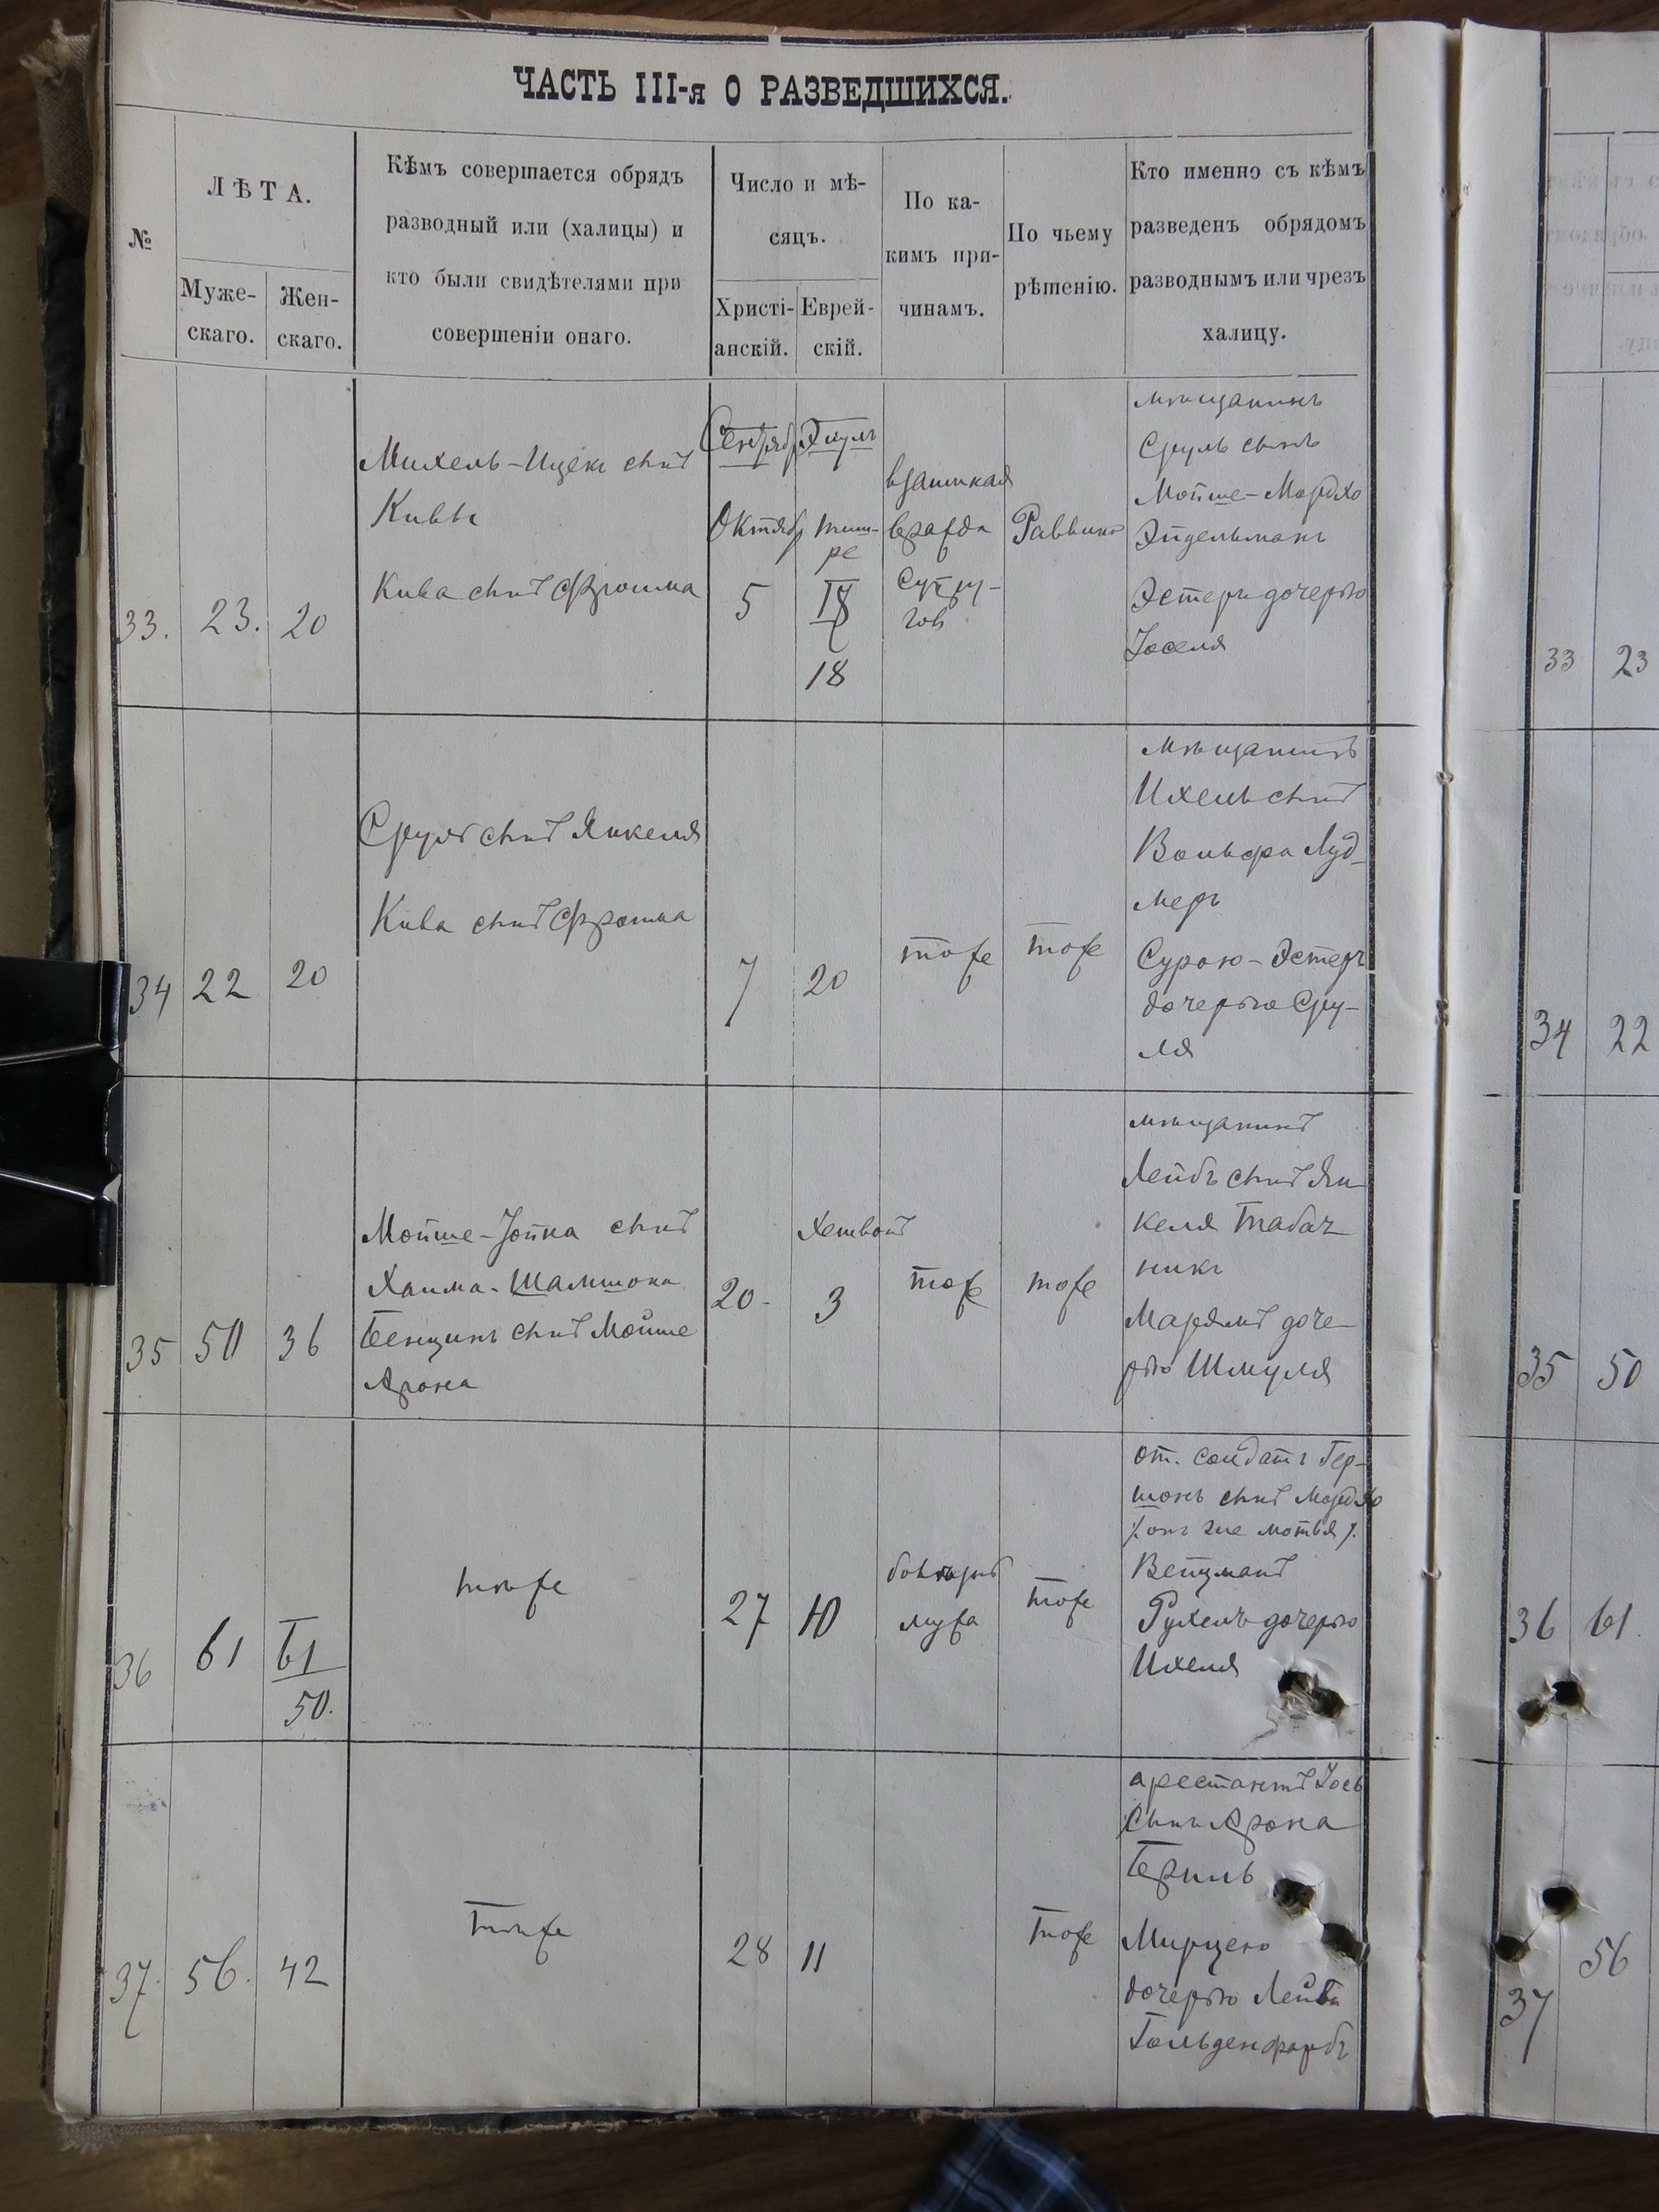 ЧАСТЬ III-я О РАЗВЕДШИХСЯ.
№
ЛѢТА.
Муже-
скаго.
Жен-
скаго.
Кѣмъ совершается обрядъ
разводный или (халицы) и
кто были свидѣтелями при
совершеніи онаго.
Число и мѣ-
сяцъ.
Христі-
анскій.
Еврей-
скій.
По ка-
кимъ при-
чинамъ.
По чьему
рѣшенію.
Кто именно съ кѣмъ
разведенъ обрядомъ
разводнымъ или чрезъ
халицу.
33.
23.
20
Михель-Ицекъ сынъ
Кивы
Кива сынъ Фроима
Сентябр
Октябр
5
Элулъ
тиш-
ре
18
взаимная
вражда
супру-
говъ
Раввина
мѣщанинъ
Сруль сынъ
Мойше-Мордхо
Эйдельманъ
Эстеръ дочерью
Іоселя
34
22
20
Сруль сынъ Янкеля
Кива сынъ Фроима
7
20
тоже
тоже
мѣщанинъ
Ихель сынъ
Вольфа Луд-
меръ
Сурою-Эстеръ
дочерью Сру-
ля
35
50
36
Мойше-Іойна сынъ
Хаима-Шамшона
Бенционъ сынъ Мойше
Арона
20
Хешвонъ
3
тоже
тоже
мѣщанинъ
Лейбъ сынъ Ян
келя Табач
никъ
Марямъ доче-
рью Шмуля
36
61
61
50.
тоже
27
10
мужа
тоже
от. солдатъ Гер-
шонъ сынъ Мордхо
/. онъ же Мотья /.
Вейцманъ
Рухель дочерью
Ихеля
37.
56.
42
тоже
28
11
тоже
арестантъ Іось
сынъ Арона
Бериль
Мирцею
дочерью Лейбы
Гольденфарбъ
33
23
34
22
35
50
36
61.
37
56